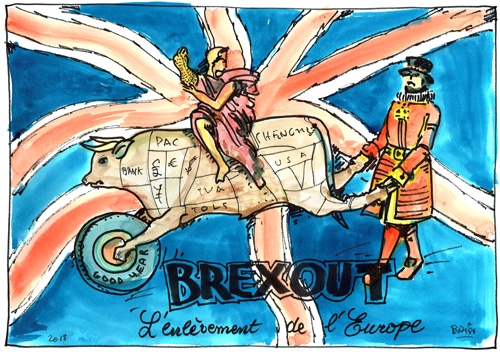 PAC
CHENGHEN
BANK
€
USA
TVA
TOLS
GOOD YEAR
BREXOUT
L'enlèvement de l'Europe
2018